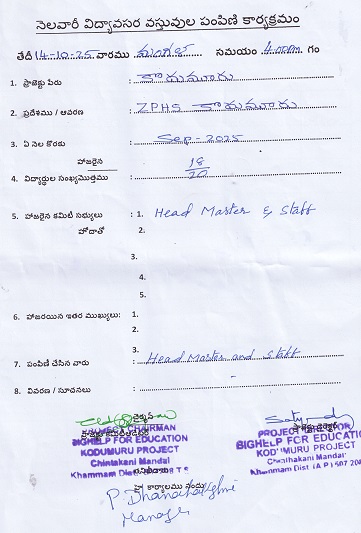 నెలవారీ విద్యావసర వస్తువుల పంపిణి కార్యక్రమం
తేదీ 14-10-25 వారము మంగళ సమయం 4.00pm గం
1. ప్రాజెక్టు పేరు : కొదుమూరు
2. ప్రదేశము / ఆవరణ : ZPHS కొదుమూరు
3. ఏ నెల కొరకు : Sep - 2025
హాజరైన 18
4. విద్యార్ధుల సంఖ్యమొత్తము : 20
5. హాజరైన కమిటీ సభ్యులు : 1. Head Master & Staff
హోదాతో 2.
3.
4.
5.
6. హాజరయిన ఇతర ముఖ్యులు: 1.
2.
3.
7. పంపిణి చేసిన వారు : Head Master and Staff
8. వివరణ / సూచనలు :
PROJECT CHAIRMAN
BIGHELP FOR EDUCATION
KODUMURU PROJECT
Chintakani Mandal
Khammam Dist
PROJECT DIRECTOR
BIGHELP FOR EDUCATION
KODUMURU PROJECT
Chinthakani Mandal
Khammam Dist (A.P) 507 20
P. Dhanalakshmi
Manager